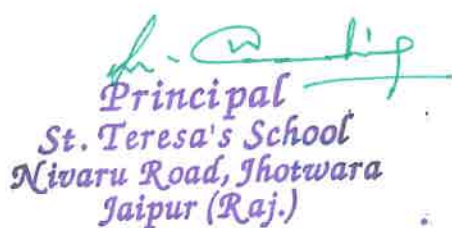 Principal
St. Teresa's School
Nivaru Road, Jhotwara
Jaipur (Raj.)